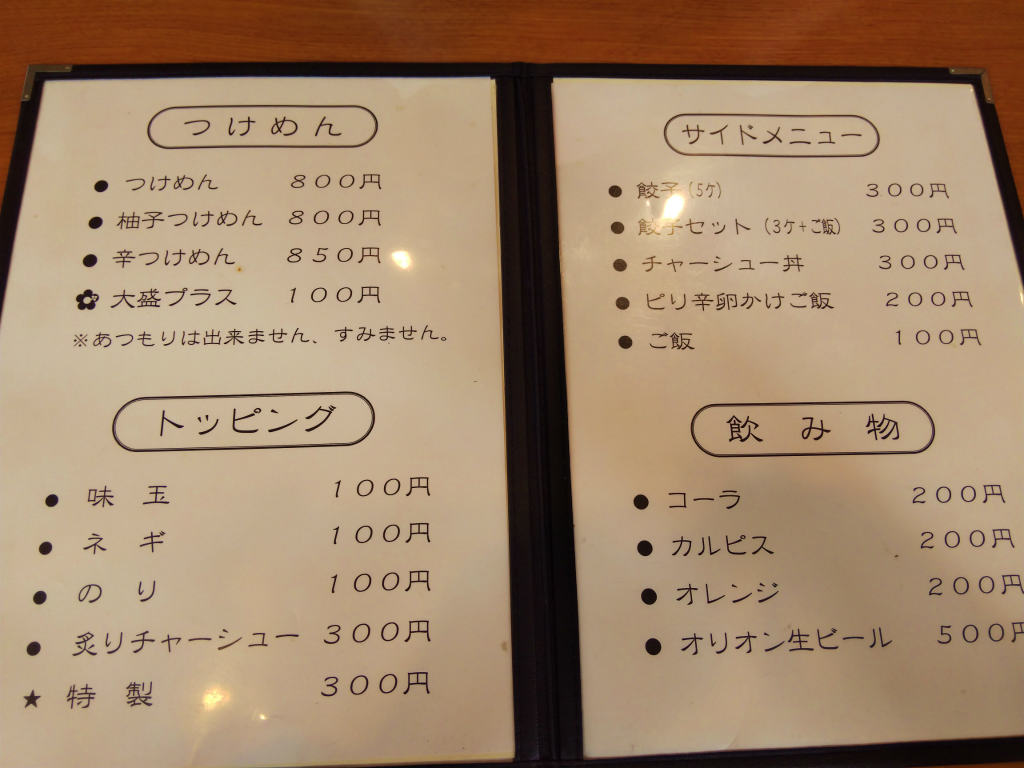 つけめん
つけめん 800円
柚子つけめん 800円
辛つけめん 850円
大盛プラス 100円
※あつもりは出来ません、すみません。
トッピング
味玉 100円
ネギ 100円
のり 100円
炙りチャーシュー 300円
★ 特製 300円
サイドメニュー
餃子(5ケ) 300円
餃子セット(3ケ+ご飯) 300円
チャーシュー丼 300円
ピリ辛卵かけご飯 200円
ご飯 100円
飲み物
コーラ 200円
カルピス 200円
オレンジ 200円
オリオン生ビール 500円